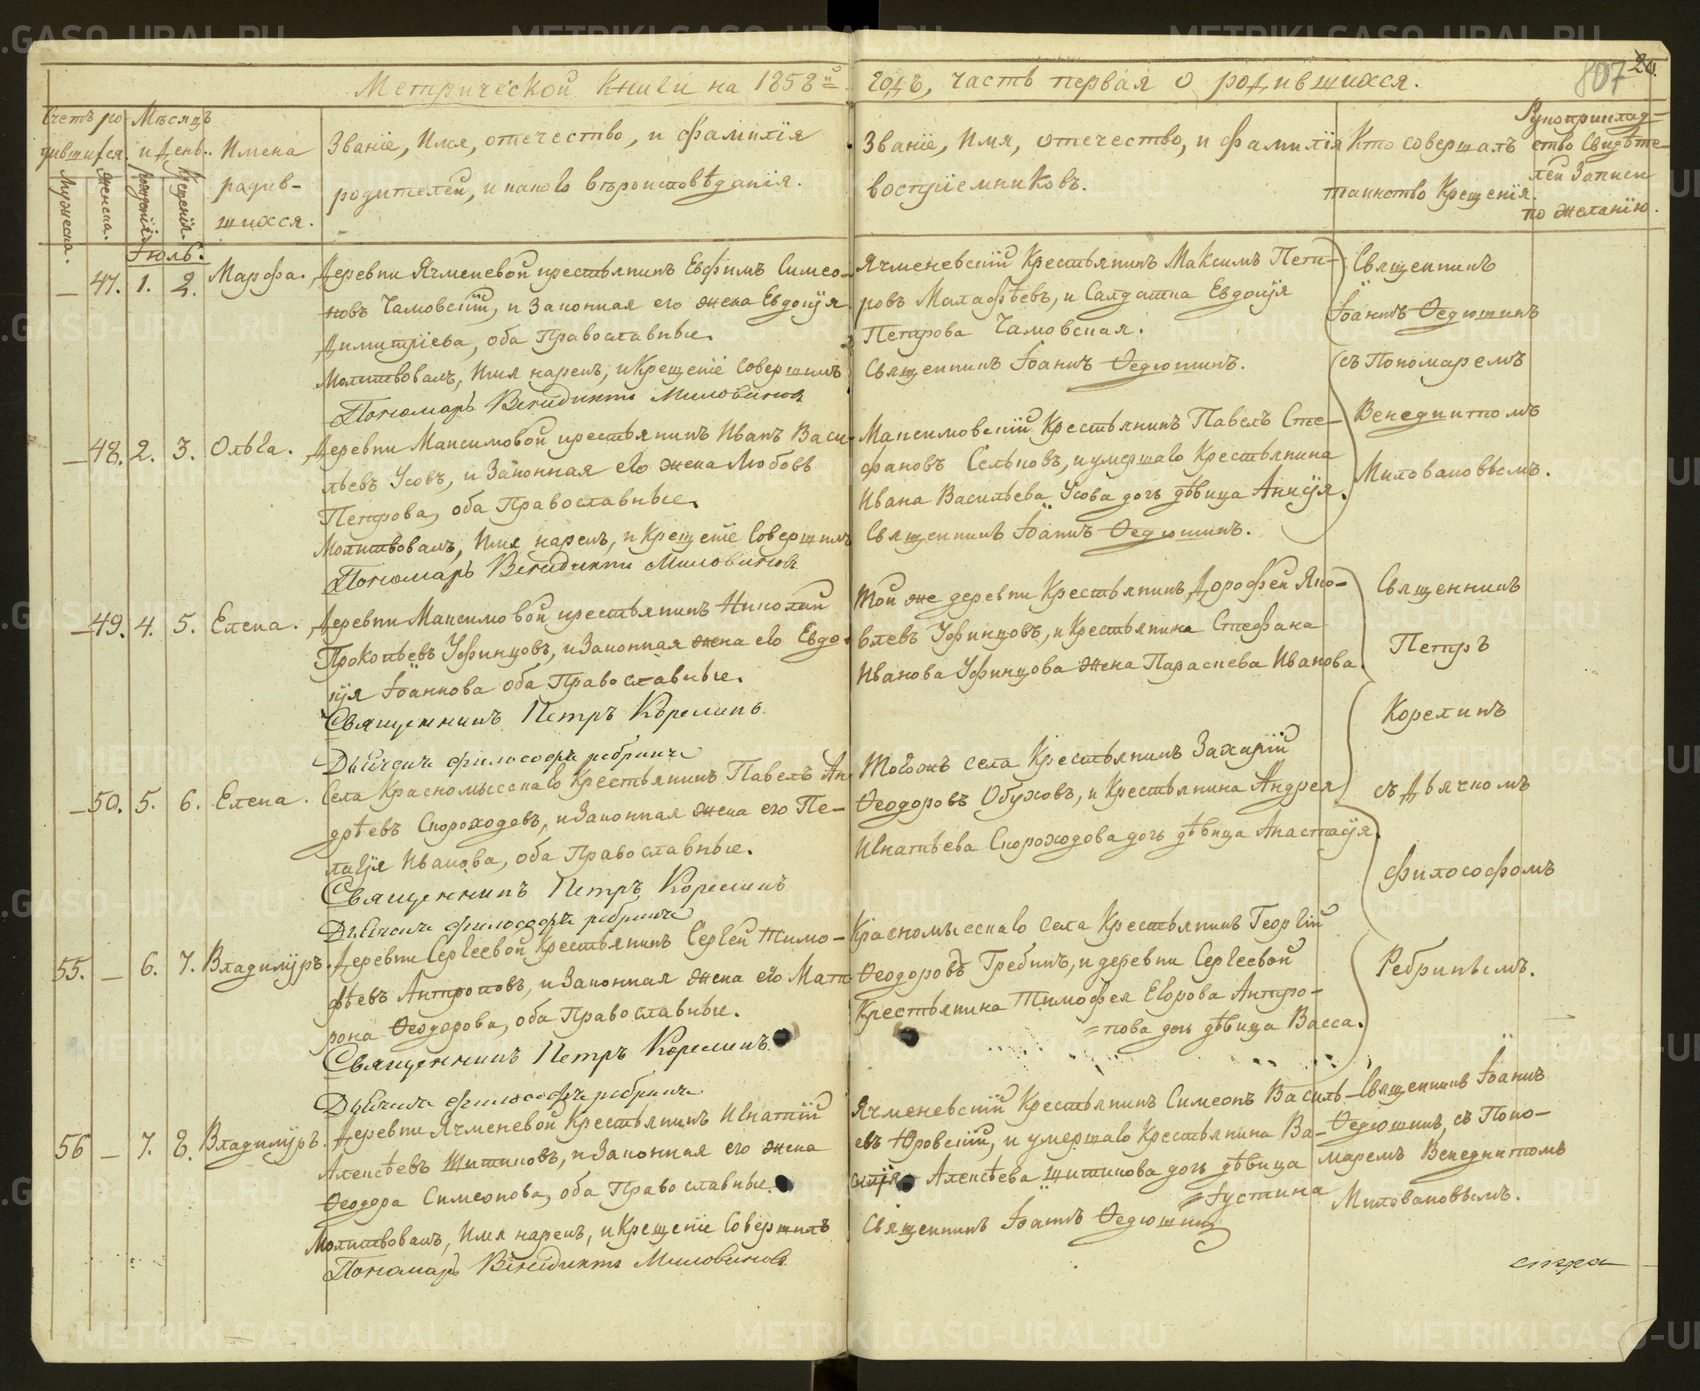 Метрической книги на 1858й годъ, часть первая о родившихся.
807 20.
Счетъ ро-
дившихся.
Мужеска.
Женска.
Мѣсяцъ
и день.
рожденія.
крещенія.
Имена
родив-
шихся.
Званіе, Имя, отечество, и фамилія
родителей, и какого вѣроисповѣданія.
Званіе, Имя, отечество, и фамилія
воспріемниковъ.
Кто совершалъ
таинство Крещенія.
Рукоприклад-
ство Свидѣте-
лей Записи
по желанію.
Іюль.
— 47. 1. 2. Марѳа.
Деревни Ячменевой крестьянинъ Евфимъ Симео-
новъ Чамовскій, и Законная его жена Евдокія
Димитріева, оба Православные.
Молитвовалъ, Имя нарекъ, и Крещеніе Совершилъ
Пономарь Венидиктъ Миловановъ
Ячменевскій Крестьянинъ Максимъ Пет-
ровъ Малафѣевъ, и Салдатка Евдокія
Петрова Чамовская.
Священникъ Іоаннъ Ѳедюшинъ.
Священникъ
Іоаннъ Ѳедюшинъ
съ Пономаремъ
Венедиктомъ
Миловановымъ.
— 48. 2. 3. Ольга.
Деревни Максимовой крестьянинъ Иванъ Васи-
льевъ Усовъ, и Законная его жена Любовь
Петрова, оба Православные.
Молитвовалъ, Имя нарекъ, и Крещеніе Совершилъ
Пономарь Венидиктъ Миловановъ
Максимовскій Крестьянинъ Павелъ Сте-
фановъ Сельковъ, и умершаго Крестьянина
Ивана Васильева Усова дочь дѣвица Анисія.
Священникъ Іоаннъ Ѳедюшинъ.
— 49. 4. 5. Елена.
Деревни Максимовой крестьянинъ Николай
Прокопьевъ Уфинцовъ, и Законная жена его Евдо-
кія Іоаннова оба Православные.
Священникъ Петръ Корелинъ
Дьячокъ философъ ребринъ
Той же деревни Крестьянинъ Дорофей Яко-
влевъ Уфинцовъ, и Крестьянина Стефана
Иванова Уфинцова жена Параскева Иванова.
Священникъ
Петръ
Корелинъ
съ Дьячкомъ
Философомъ
Ребринымъ.
— 50. 5. 6. Елена.
Села Красномысскаго Крестьянинъ Павелъ Ан-
дрѣевъ Скороходовъ, и Законная жена его Пе-
лагія Иванова, оба Православные.
Священникъ Петръ Корелинъ
Дьячокъ философъ ребринъ
Тогожъ села Крестьянинъ Захарій
Ѳеодоровъ Обуховъ, и Крестьянина Андрея
Игнатьева Скороходова дочь дѣвица Анастасія.
55. — 6. 7. Владиміръ.
Деревни Сергеевой Крестьянинъ Сергей Тимо-
фѣевъ Антроповъ, и Законная жена его Мат-
рона Ѳеодорова, оба Православные.
Священникъ Петръ Корелинъ
Дьячокъ философъ ребринъ
Красномысскаго села Крестьянинъ Георгій
Ѳеодоровъ Гребинъ, и деревни Сергеевой
Крестьянина Тимофея Егорова Антро-
=пова дочь дѣвица Васса.
56 — 7. 8. Владиміръ.
Деревни Ячменевой Крестьянинъ Игнатій
Алексѣевъ Шитиковъ, и Законная его жена
Ѳеодора Симеонова, оба Православные.
Молитвовалъ, Имя нарекъ, и Крещеніе Совершилъ
Пономарь Венидиктъ Миловановъ
Ячменевскій Крестьянинъ Симеонъ Василь-
евъ Юровскій, и умершаго Крестьянина Ва-
силія Алексѣева Шитикова дочь дѣвица
=Іустина
Священникъ Іоаннъ Ѳедюшинъ
Священникъ Іоаннъ
Ѳедюшинъ, съ Поно-
маремъ Венедиктомъ
Миловановымъ.
METRIKI.GASO-URAL.RU